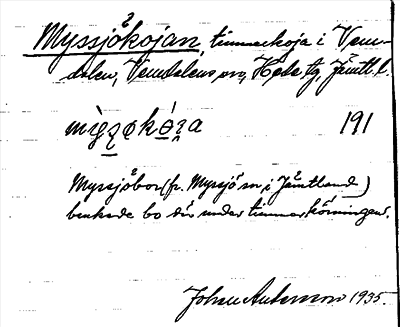 Myssjökojan, timmerkoja i Vem-
dalen, Vemdalens sn, Hede tg, Jämtl. l.
191
Myssjöbor (fr. Myssjö sn i Jämtland)
brukade bo där under timmerkörningen.
Johan Anderson 1935.